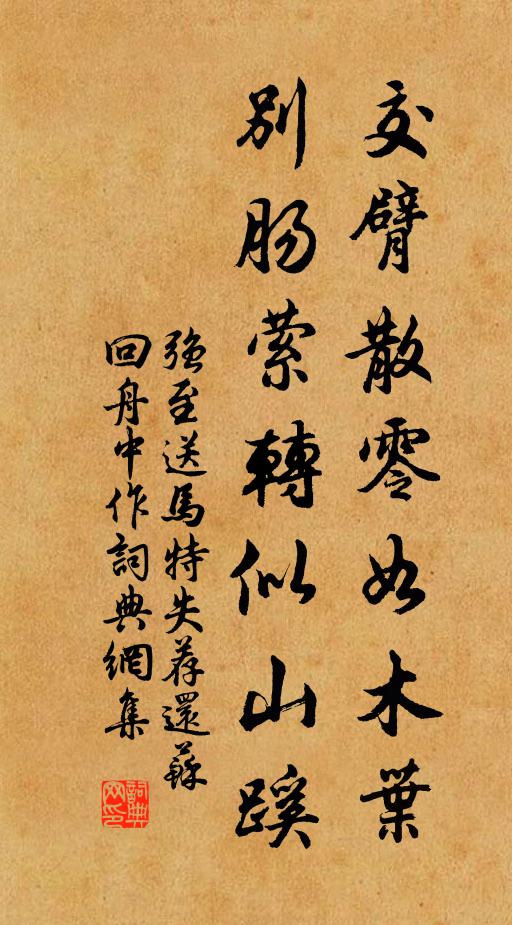 交臂散零如木葉
别腸縈轉似山蹊
強至送馬特失荐還蘇
回舟中作詞典網集
詞典
网印